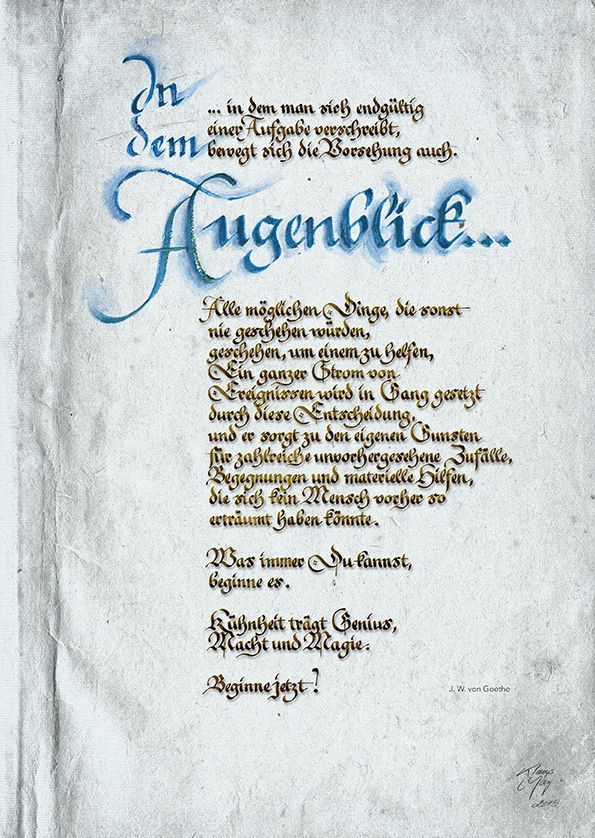 In
dem
Augenblick...
... in dem man sich endgültig
einer Aufgabe verschreibt,
bewegt sich die Vorsehung auch.
Alle möglichen Dinge, die sonst
nie geschehen würden,
geschehen, um einem zu helfen,
Ein ganzer Strom von
Ereignissen wird in Gang gesetzt
durch diese Entscheidung,
und er sorgt zu den eigenen Gunsten
für zahlreiche unvorhergesehene Zufälle,
Begegnungen und materielle Hilfen,
die sich kein Mensch vorher so
erträumt haben könnte.
Was immer Du kannst,
beginne es.
Kühnheit trägt Genius,
Macht und Magie.
Beginne jetzt!
J. W. von Goethe
2015